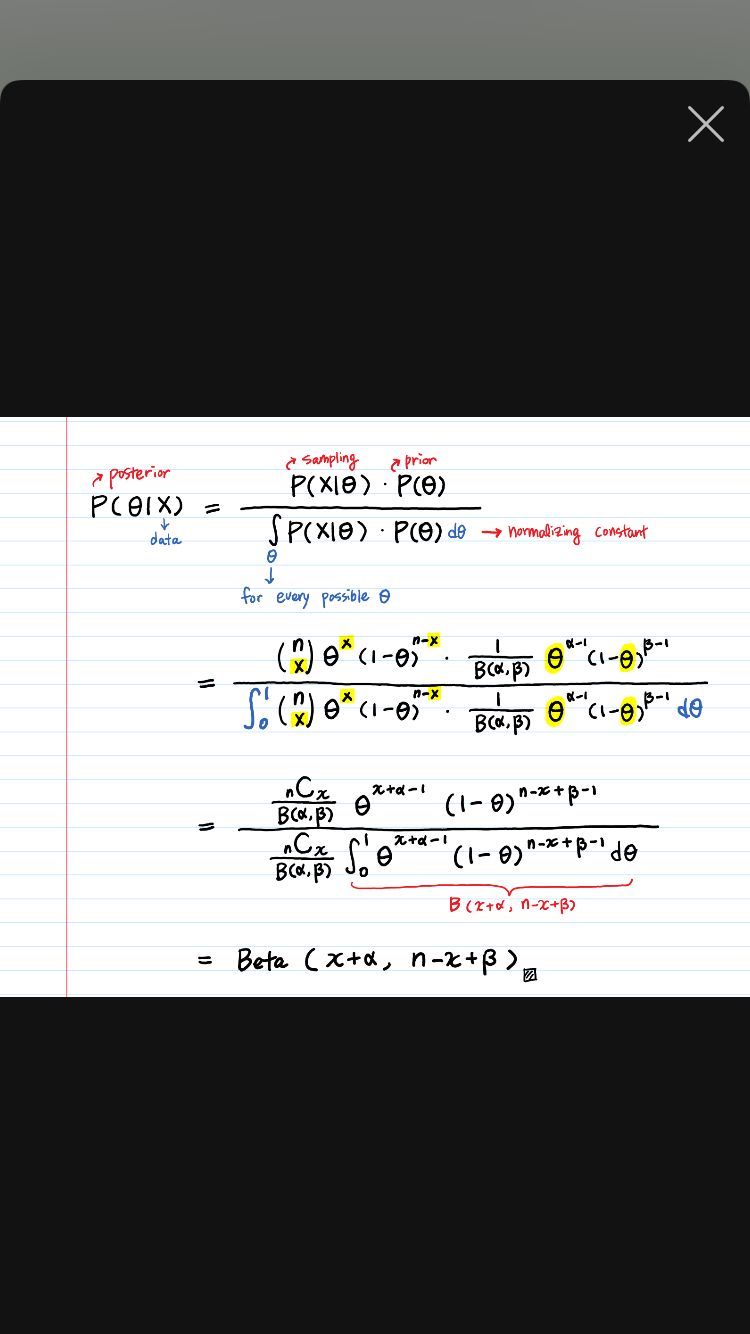 posterior
sampling
prior
P(θ|X) = P(X|θ) · P(θ)
data
∫ P(X|θ) · P(θ) dθ → normalizing constant
θ
for every possible θ
= (n x) θ^x (1-θ)^n-x · 1/B(α,β) θ^α-1 (1-θ)^β-1
∫₀¹ (n x) θ^x (1-θ)^n-x · 1/B(α,β) θ^α-1 (1-θ)^β-1 dθ
= nCx/B(α,β) θ^x+α-1 (1-θ)^n-x+β-1
nCx/B(α,β) ∫₀¹ θ^x+α-1 (1-θ)^n-x+β-1 dθ
B(x+α, n-x+β)
= Beta (x+α, n-x+β)